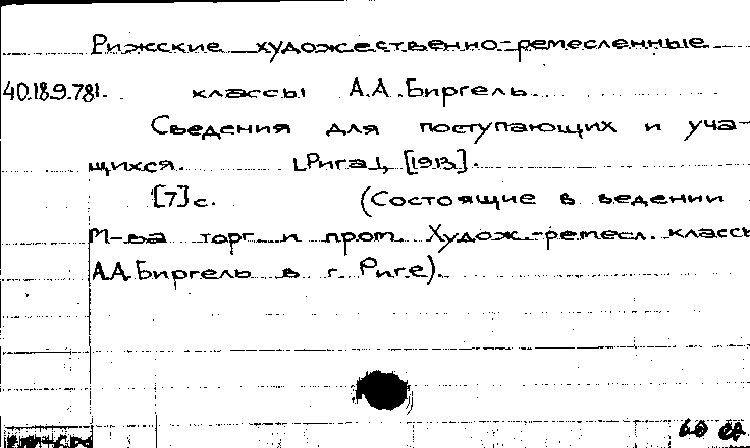 Рижские художественно-ремесленные
40.18.9.781. классы А.А.Биргель.
Сведения для поступающих и уча-
щихся. [Рига], [1913].
[7] с. (Состоящие в ведении
М-ва торг. и пром. Худож.-ремесл. классы
А.А.Биргель в г. Риге).